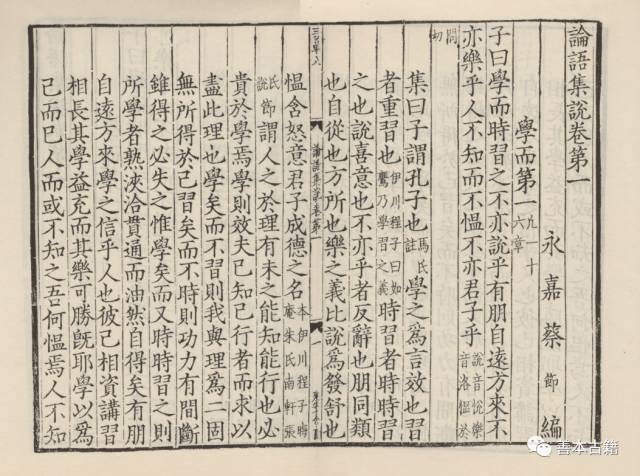 論語集說卷第一
永嘉蔡節編
學而第一凡一十六章
子曰學而時習之不亦說乎有朋自遠方來不
亦樂乎人不知而不慍不亦君子乎說音悅樂音洛慍於
問切
集曰子謂孔子也馬氏註學之爲言效也習
者重習也伊川程子曰如鷽乃學習之義時習者時時習
之也說喜意也不亦乎者反辭也朋同類
也自從也方所也樂之義比說爲發舒也
慍含怒意君子成德之名本伊川程子晦庵朱氏南軒張
氏說節謂人之於理有未之能知能行也必
貴於學焉學則效夫己知己行者而求以
盡此理也學矣而不習則我與理爲二固
無所得於己習矣而不時則功力有間斷
雖得之必失之惟學矣而又時時習之則
所學者熟浹洽貫通而油然自得矣有朋
自遠方來學之信乎人也彼己相資講習
相長其學益充而其樂可勝旣耶學以爲
己而已人而或不知之吾何慍焉人不知
論語集說卷第一
一
善本古籍